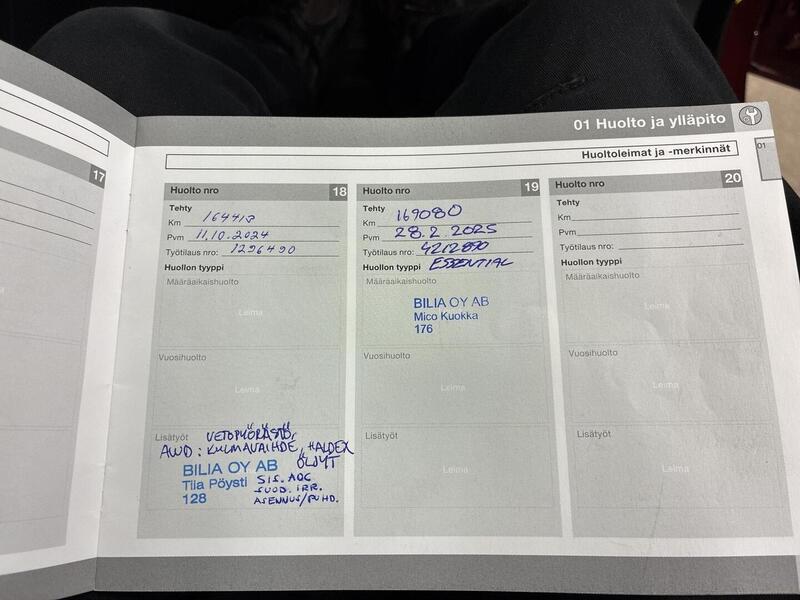 17
01 Huolto ja ylläpito
01
Huoltoleimat ja -merkinnät
Huolto nro 18
Tehty
Km 164418
Pvm 11.10.2024
Työtilaus nro: 1296490
Huollon tyyppi
Määräaikaishuolto
Leima
Vuosihuolto
Leima
Lisätyöt VETOPYÖRÄSTÖ,
AWD: KULMAVAIHDE, HALDEX
ÖLJYT
BILIA OY AB
Tiia Pöysti
128
SIS. AOC
SUOD. IRR.
ASENNUS/PUHD.
Huolto nro 19
Tehty
Km 169080
Pvm 28.2.2025
Työtilaus nro: 4212890
Huollon tyyppi ESSENTIAL
Määräaikaishuolto
BILIA OY AB
Mico Kuokka
176
Vuosihuolto
Leima
Lisätyöt
Leima
Huolto nro 20
Tehty
Km
Pvm
Työtilaus nro:
Huollon tyyppi
Määräaikaishuolto
Leima
Vuosihuolto
Leima
Lisätyöt
Leima